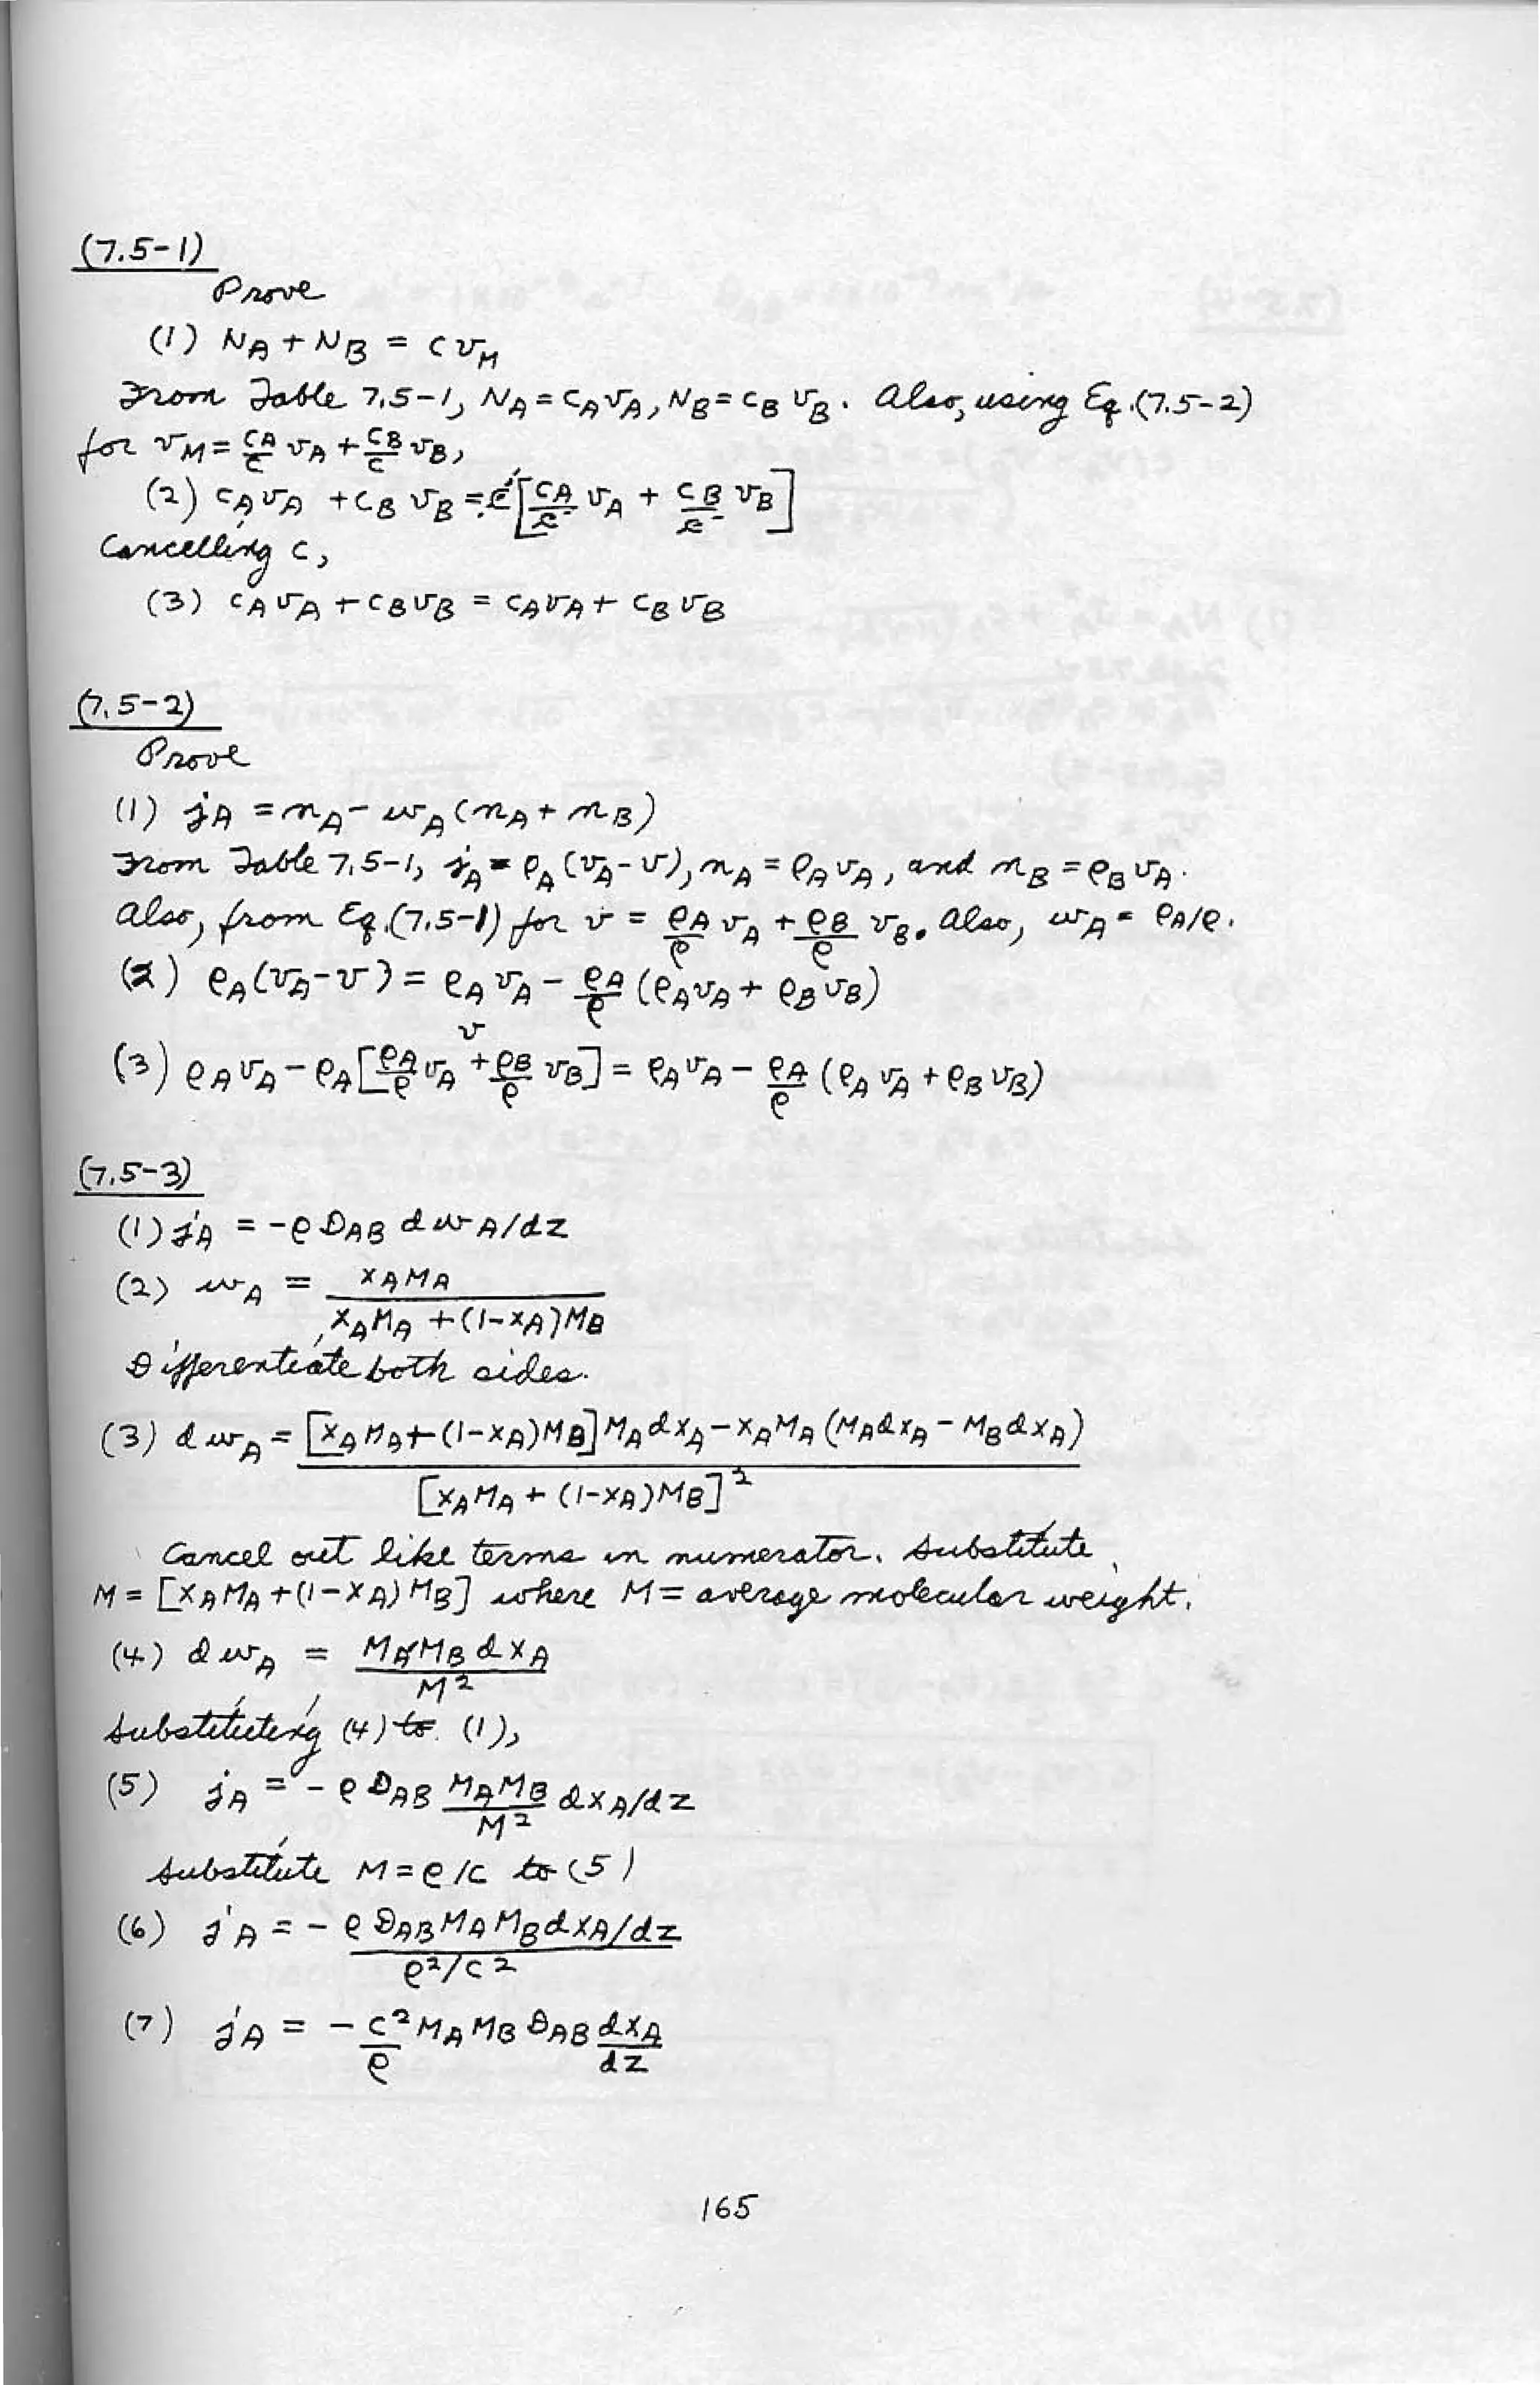 (7.5-1)
Prove
(1) N_A + N_B = c v_M
From Table 7.5-1, N_A = c_A v_A, N_B = c_B v_B. Also, using Eq.(7.5-2)
for v_M = c_A/c v_A + c_B/c v_B,
(2) c_A v_A + c_B v_B = c[c_A/c v_A + c_B/c v_B]
Cancelling c,
(3) c_A v_A + c_B v_B = c_A v_A + c_B v_B
(7.5-2)
Prove
(1) j_A = n_A - w_A (n_A + n_B)
From Table 7.5-1, j_A = ρ_A (v_A - v), n_A = ρ_A v_A, and n_B = ρ_B v_A.
Also, from Eq.(7.5-1) for v = ρ_A/ρ v_A + ρ_B/ρ v_B. Also, w_A = ρ_A/ρ.
(2) ρ_A (v_A - v) = ρ_A v_A - ρ_A/ρ (ρ_A v_A + ρ_B v_B)
v
(3) ρ_A v_A - ρ_A [ρ_A/ρ v_A + ρ_B/ρ v_B] = ρ_A v_A - ρ_A/ρ (ρ_A v_A + ρ_B v_B)
(7.5-3)
(1) j_A = -ρ D_AB d w_A/dz
(2) w_A = x_A M_A / x_A M_A + (1-x_A) M_B
Differentiate both sides.
(3) d w_A = [x_A M_A + (1-x_A) M_B] M_A dx_A - x_A M_A (M_A dx_A - M_B dx_A) / [x_A M_A + (1-x_A) M_B]²
Cancel out like terms in numerator. Substitute
M = [x_A M_A + (1-x_A) M_B] where M = average molecular weight.
(4) d w_A = M_A M_B d x_A / M²
Substituting (4) to (1),
(5) j_A = -ρ D_AB M_A M_B/M² dx_A/dz
Substitute M = ρ/c to (5)
(6) j_A = - ρ D_AB M_A M_B dx_A/dz / ρ²/c²
(7) j_A = - c²/ρ M_A M_B D_AB dx_A/dz
165